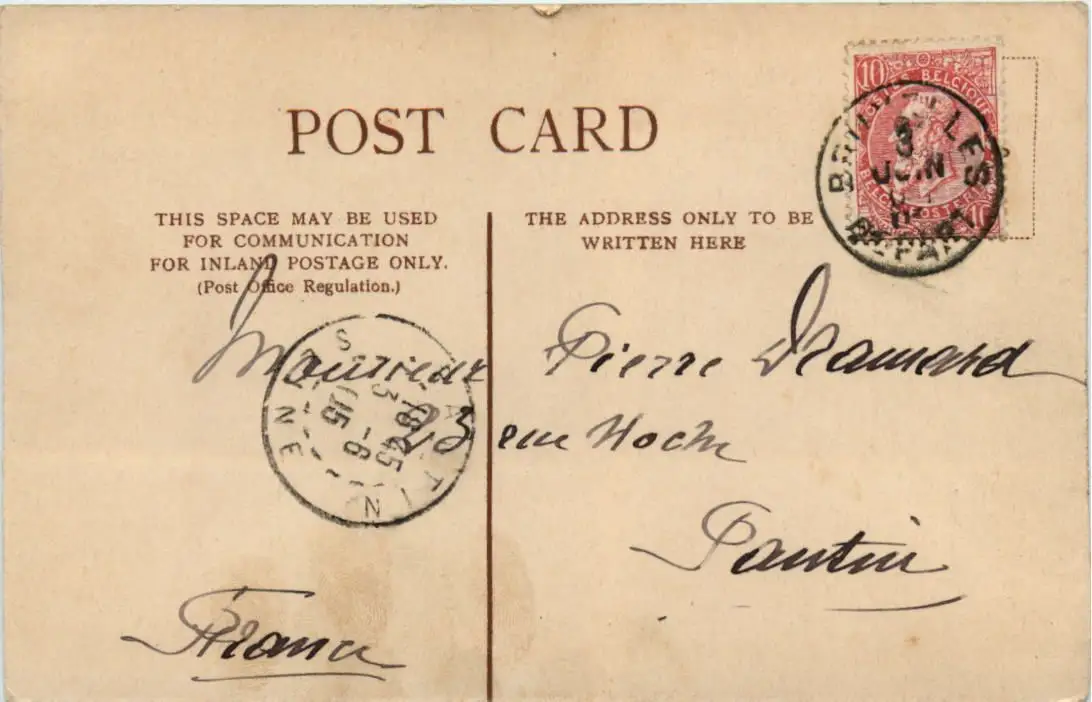 POST CARD
THIS SPACE MAY BE USED
FOR COMMUNICATION
FOR INLAND POSTAGE ONLY.
(Post Office Regulation.)
THE ADDRESS ONLY TO BE
WRITTEN HERE
10
BELGIQUE
BRUXELLES
3
JUIN
DEPART
Monsieur Pierre Dramard
23 rue Hoche
Pantin
France
PANTIN
SEINE
18 45
3 - 6
05